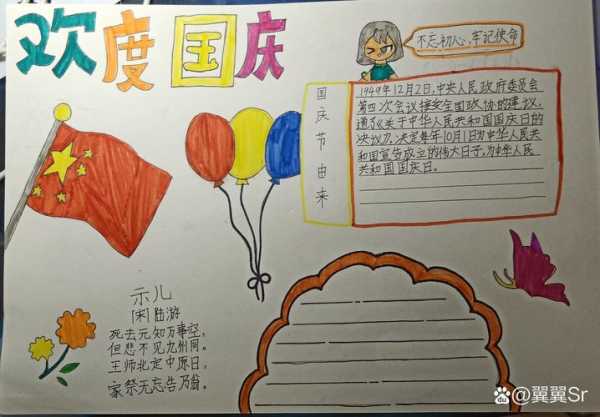 欢度国庆
不忘初心,牢记使命
国庆节由来
1949年12月2日,中央人民政府委员会
第四次会议接受全国政协的建议,
通了《关于中华人民共和国国庆日的
决议》,决定每年10月1日为中华人民共
和国宣告成立的伟大日子,为中华人民
共和国国庆日。
示儿
[宋]陆游
死去元知万事空,
但悲不见九州同。
王师北定中原日,
家祭无忘告乃翁。
@翼翼Sr